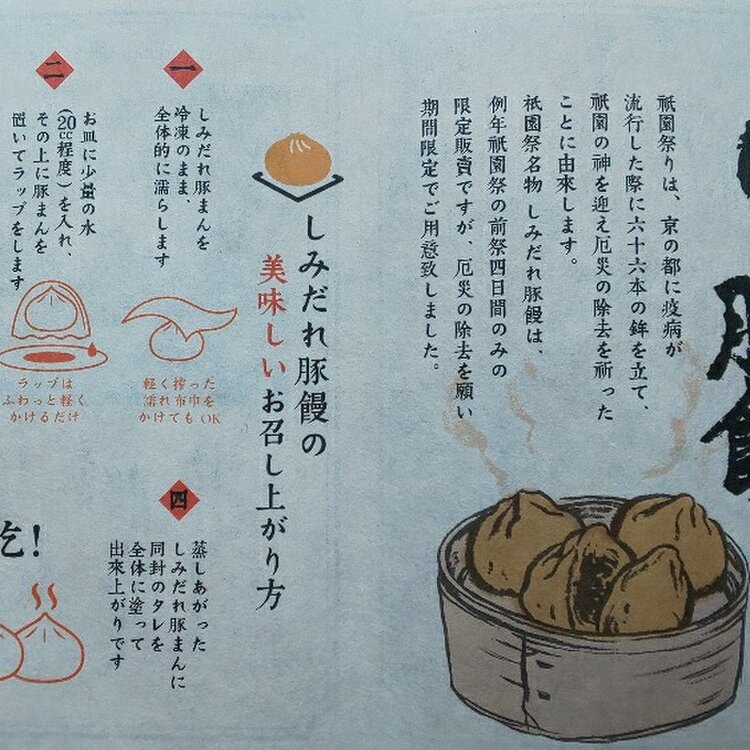 豚饅
祇園祭りは、京の都に疫病が
流行した際に六十六本の鉾を立て、
祇園の神を迎え厄災の除去を祈った
ことに由来します。
祇園祭名物 しみだれ豚饅は、
例年祇園祭の前祭四日間のみの
限定販賣ですが、厄災の除去を願い
期間限定でご用意致しました。
しみだれ豚饅の
美味しいお召し上がり方
一
しみだれ豚まんを
冷凍のまま、
全体的に濡らします
軽く搾った
濡れ布巾を
かけてもOK
二
お皿に少量の水
(20cc程度)を入れ、
その上に豚まんを
置いてラップをします
ラップは
ふわっと軽く
かけるだけ
四
蒸しあがった
しみだれ豚まんに
同封のタレを
全体に塗って
出來上がりです
吃!